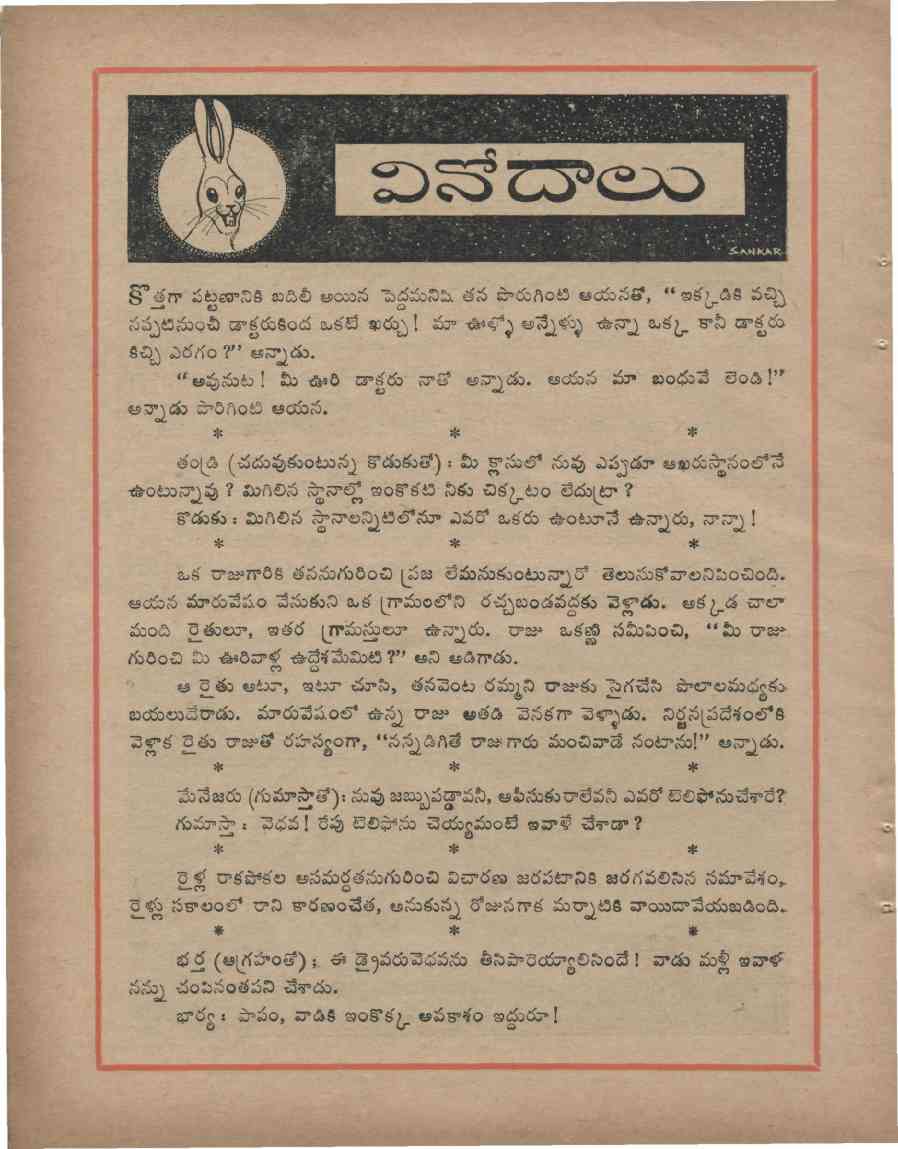 వినోదాలు
SANKAR
కొత్తగా పట్టణానికి బదిలీ అయిన పెద్దమనిషి తన పొరుగింటి ఆయనతో, “ ఇక్కడికి వచ్చి
నప్పటినుంచీ డాక్టరుకింద ఒకటే ఖర్చు! మా ఊళ్ళో అన్నేళ్ళు ఉన్నా ఒక్క కానీ డాక్టరు
కిచ్చి ఎరగం ?” అన్నాడు.
“ అవునుట ! మీ ఊరి డాక్టరు నాతో అన్నాడు. ఆయన మా బంధువే లెండి !”
అన్నాడు పొరిగింటి ఆయన.
* * *
తండ్రి (చదువుకుంటున్న కొడుకుతో) : మీ క్లాసులో నువు ఎప్పడూ ఆఖరుస్థానంలోనే
ఉంటున్నావు ? మిగిలిన స్థానాల్లో ఇంకొకటి నీకు చిక్కటం లేదుట్రా ?
కొడుకు : మిగిలిన స్థానాలన్నిటిలోనూ ఎవరో ఒకరు ఉంటూనే ఉన్నారు, నాన్నా !
* * *
ఒక రాజుగారికి తననుగురించి ప్రజ లేమనుకుంటున్నారో తెలుసుకోవాలనిపించింది.
ఆయన మారువేషం వేసుకుని ఒక గ్రామంలోని రచ్చబండవద్దకు వెళ్లాడు. అక్కడ చాలా
మంది రైతులూ, ఇతర గ్రామస్తులూ ఉన్నారు. రాజు ఒకణ్ణి సమీపించి, “మీ రాజు
గురించి మీ ఊరివాళ్ల ఉద్దేశమేమిటి ?” అని అడిగాడు.
ఆ రైతు అటూ, ఇటూ చూసి, తనవెంట రమ్మని రాజుకు సైగచేసి పొలాలమధ్యకు
బయలుదేరాడు. మారువేషంలో ఉన్న రాజు అతడి వెనకగా వెళ్ళాడు. నిర్జనప్రదేశంలోకి
వెళ్లాక రైతు రాజుతో రహస్యంగా, “నన్నడిగితే రాజుగారు మంచివాడే నంటాను!” అన్నాడు.
* * *
మేనేజరు (గుమాస్తాతో): నువు జబ్బుపడ్డావనీ, ఆఫీసుకురాలేవనీ ఎవరో టెలిఫోనుచేశారే?
గుమాస్తా : వెధవ ! రేపు టెలిఫోను చెయ్యమంటే ఇవాళే చేశాడా ?
* * *
రైళ్ల రాకపోకల అసమర్ధతనుగురించి విచారణ జరపటానికి జరగవలిసిన సమావేశం,
రైళ్లు సకాలంలో రాని కారణంచేత, అనుకున్న రోజునగాక మర్నాటికి వాయిదావేయబడింది.
* * *
భర్త (ఆగ్రహంతో) ; ఈ డ్రైవరువెధవను తీసిపారెయ్యాలిసిందే ! వాడు మళ్లీ ఇవాళ
నన్ను చంపినంతపని చేశాడు.
భార్య : పాపం, వాడికి ఇంకొక్క అవకాశం ఇద్దురూ !